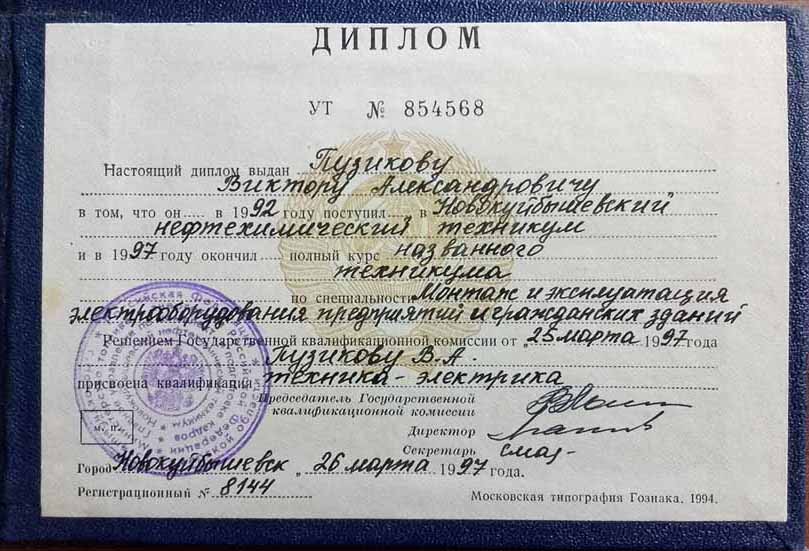 ДИПЛОМ
УТ № 854568
Настоящий диплом выдан Пузикову
Виктору Александровичу
в том, что он в 1992 году поступил в Новокуйбышевский
нефтехимический техникум
и в 1997 году окончил полный курс названного
техникума
по специальности Монтаж и эксплуатация
электрооборудования предприятий и гражданских зданий
Решением Государственной квалификационной комиссии от „25 марта 1997 года
Пузикову В.А.
присвоена квалификация техника-электрика
Председатель Государственной
квалификационной комиссии
Директор
Секретарь
м. п.
Город Новокуйбышевск „ 26 марта 1997 года.
Регистрационный № 8144
Московская типография Гознака. 1994.